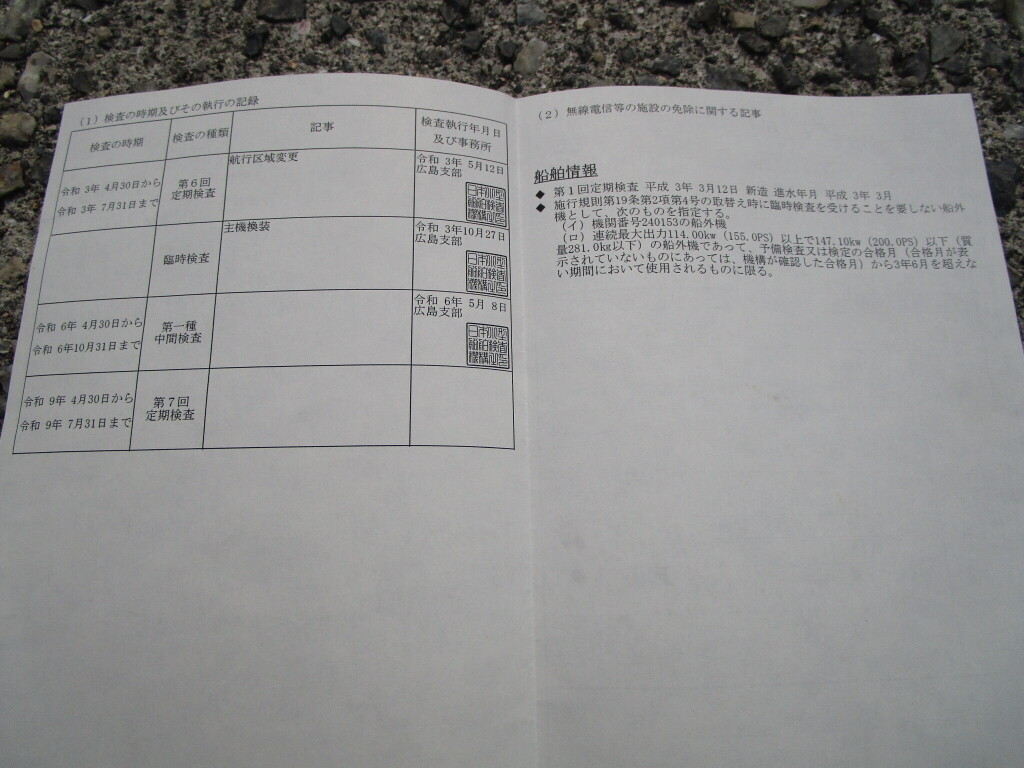 (1) 検査の時期及びその執行の記録
検査の時期 検査の種類 記事 検査執行年月日及び事務所
令和 3年 4月30日から
令和 3年 7月31日まで
第6回
定期検査
航行区域変更
令和 3年 5月12日
広島支部
臨時検査
主機換装
令和 3年10月27日
広島支部
令和 6年 4月30日から
令和 6年10月31日まで
第一種
中間検査
令和 6年 5月 8日
広島支部
令和 9年 4月30日から
令和 9年 7月31日まで
第7回
定期検査
(2) 無線電信等の施設の免除に関する記事
船舶情報
◆ 第1回定期検査 平成 3年 3月12日 新造 進水年月 平成 3年 3月
◆ 施行規則第19条第2項第4号の取替え時に臨時検査を受けることを要しない船外
機として、次のものを指定する。
(イ) 機関番号240153の船外機
(ロ) 連続最大出力114.00kw (155.0PS) 以上で147.10kw (200.0PS) 以下 (質
量281.0kg以下) の船外機であって、予備検査又は検定の合格月 (合格月が表
示されていないものにあっては、機構が確認した合格月) から3年6月を超えな
い期間において使用されるものに限る。